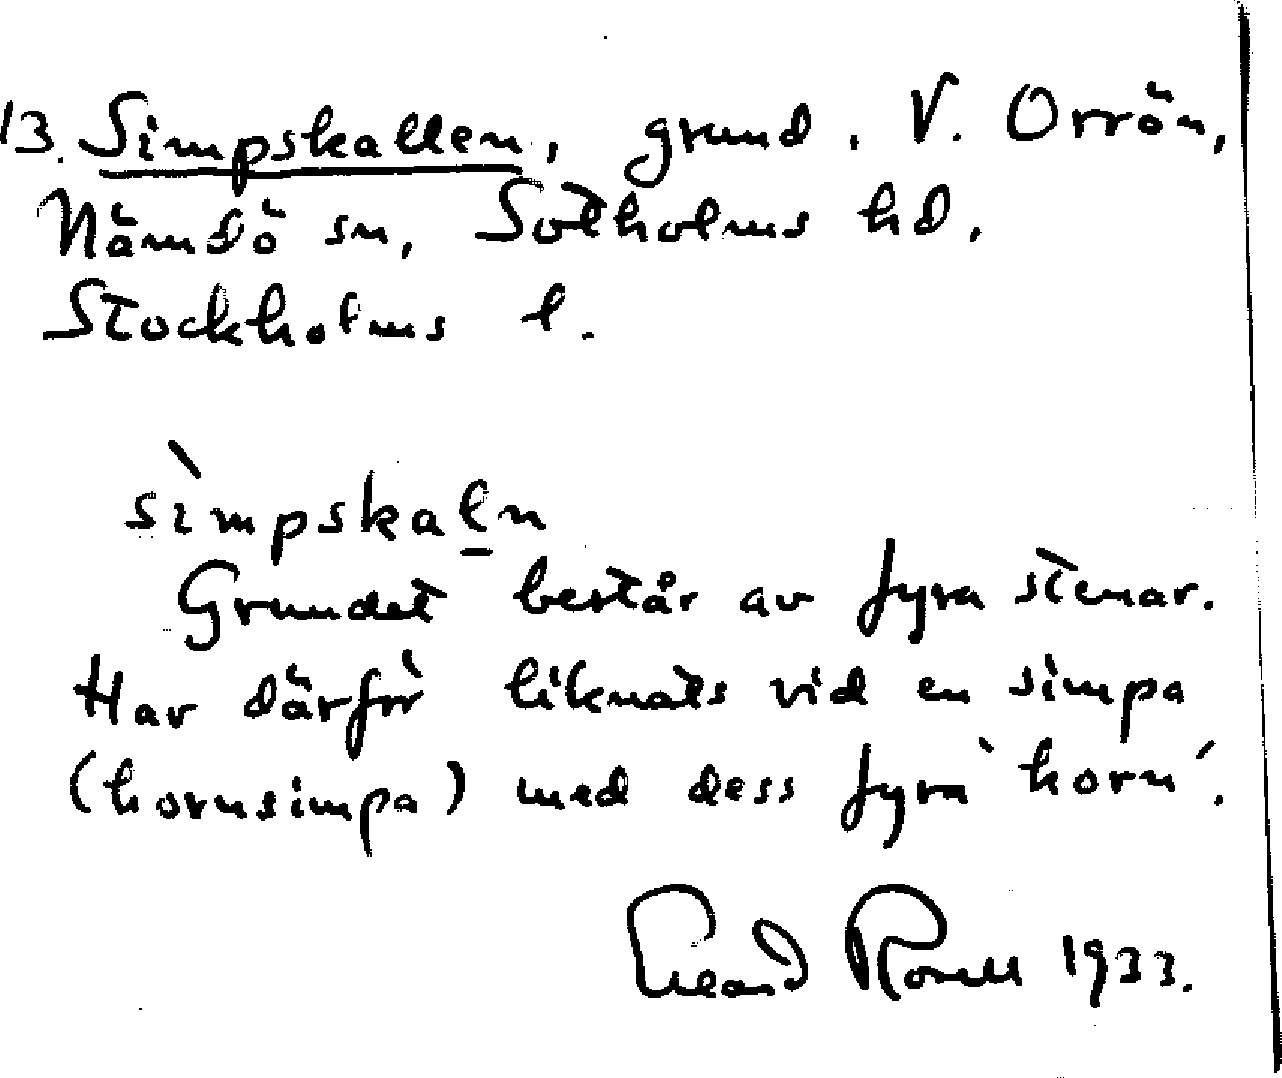 13. Simpskallen, grund. V. Orrön,
Nämdö sn, Sotholms hd.
Stockholms l.
sìmpskaḻn
Grundet består av fyra stenar.
Har därför liknats vid en simpa
(hornsimpa) med dess fyra `horn´.
1933.